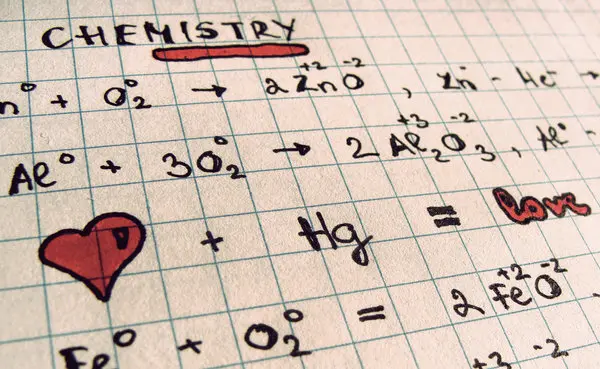 CHEMISTRY
n⁰ + O₂⁰ → 2Zn⁺²O⁻², Zn⁻ - 4e⁻ →
Al⁰ + 3O₂⁰ → 2Al₂⁺³O₃⁻², Al⁰ -
+ Hg = love
Fe⁰ + O₂⁰ = 2Fe⁺²O⁻²
+3 -2